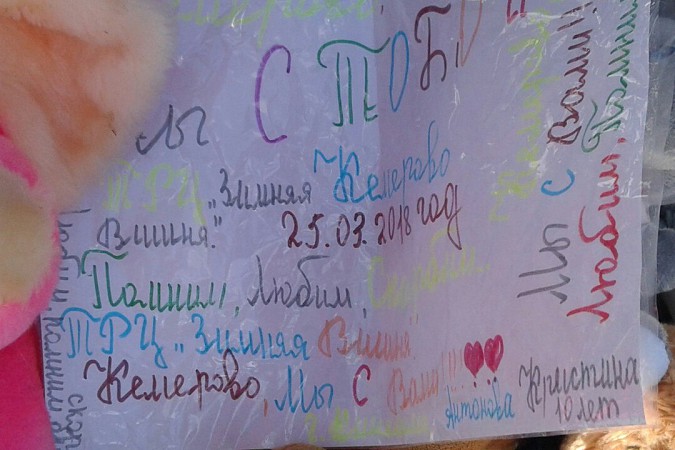 Мы С ТОБО
ТРЦ „Зимняя Кемерово
Вишня." 25.03.2018 год
Помним, Любим, Скорбим.
ТРЦ „Зимняя Вишня"
Кемерово, Мы С Вами!!!
Антонова Кристина
10 лет
Мы С Вами!!!
Любим, Помним
Любим, Помним